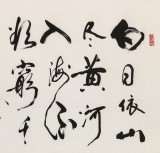 白日依山
尽黄河
入海流
欲穷千